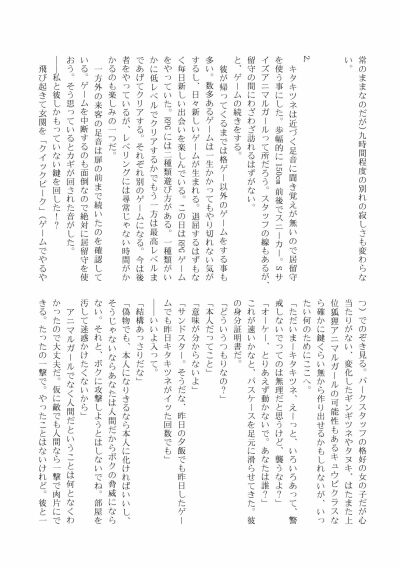 常のままなのだが)九時間程度の別れの寂しさも変わらな
い。
2.
キタキツネは近づく足音に聞き覚えが無いので居留守
を使う事にした。歩幅的に150cm前後でスニーカー。Sサ
イズアニマルガールって所だろう。スタッフの線もあるが、
留守の間にわざわざ訪れるはずがない。
と、ゲームの続きをする。
彼が帰ってくるまでは格ゲー以外のゲームをする事も
多い。数多あるゲームは一生かかってもやり切れない気が
するし、日々新しいゲームが生まれる。退屈するはずもな
く毎日新しい出会いを楽しんでいる。この日はRPGゲーム
をやっていた。RPGには二種類遊び方がある。一種類がい
かに低レベルでクリアするかでもう一方は最高レベルま
であげてクリアする。それぞれ別のゲームになる。今は後
者をやっているが、レベリングには尋常じゃない時間がか
かるのも楽しみの一つだ。
一方外の来客の足音は扉の前まで続いたのを確認して
いる。ゲームを中断するのも面倒なので絶対に居留守を使
おう。そう思っているとカギが回された音がした。
――私と彼しかもっていない鍵を回した!?
飛び起きて玄関を「クイックピーク」(ゲームでやるや
つ)でのぞき見る。パークスタッフの格好の女の子だが心
当たりがない。変化したギンギツネやタヌキ、はたまた上
位狐狸アニマルガールの可能性もあるキュウビクラスな
ら確かに鍵ぐらい無から作り出せるかもしれないが、いっ
たい何のためにここへ。
「ただいまーキタキツネ、えーっと、いろいろあって、警
戒しないでっての は無理だと思うけど、襲うなよ?」
「オーケー、とりあえず動かないで、あなたは誰?」
これが速いかなと、パスケースを足元に滑らせてきた。彼
の身分証明書だ。
「どういうつもりなの?」
「本人だってこと」
「意味が分からないよ」
「サンドスター、そうだな、昨日の夕飯でも昨日したゲー
ムでも昨日キタキツネがイッた回数でも」
――いいよ入って」
「結構あっさりだな」
「偽物でも、本人になりきるなら本人にばければいいし、
そうじゃないならあなたは人間だからボクの脅威になら
ない。それに、ボクに攻撃しようとはしないでね。部屋を
汚して迷惑かけたくないから」
アニマルガールでなく人間だということは何となくわ
かったので大丈夫だ。仮に敵でも人間なら一撃で肉片にで
きる。たったの一撃で。やったことはないけれど。彼と一